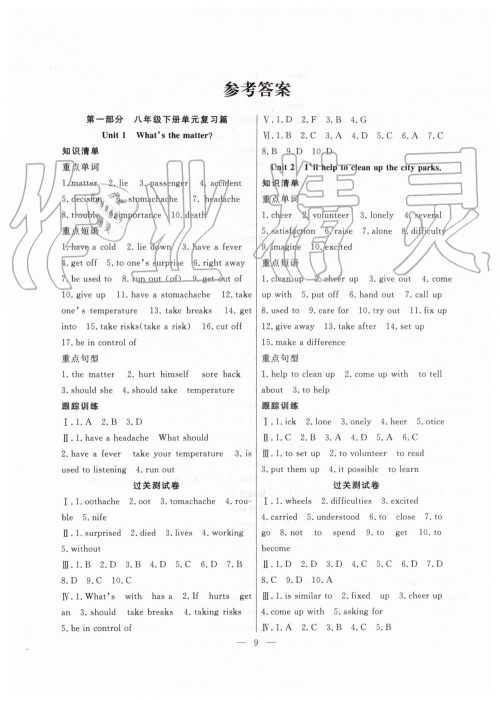 参考答案
第一部分 八年级下册单元复习篇
Unit 1 What's the matter?
知识清单
重点单词
1. matter 2. lie 3. passenger 4. accident
5. decision 6. stomachache 7. headache
8. trouble 9. importance 10. death
重点短语
1. have a cold 2. lie down 3. have a fever
4. get off 5. to one's surprise 6. right away
7. be used to 8. run out (of) 9. get out of
10. give up 11. have a stomachache 12. take
one's temperature 13. take breaks 14. get
into 15. take risks(take a risk) 16. cut off
17. be in control of
重点句型
1. the matter 2. hurt himself sore back
3. should she 4. Should take temperature
跟踪训练
Ⅰ. 1. A 2. B 3. D
Ⅱ. 1. have a headache What should
2. have a fever take your temperature 3. is
used to listening 4. run out
过关测试卷
Ⅰ. 1. oothache 2. oot 3. tomachache 4. rou-
ble 5. nife
Ⅱ. 1. surprised 2. died 3. lives 4. working
5. without
Ⅲ. 1. B 2. D 3. B 4. C 5. D 6. B 7. B
8. D 9. C 10. D
Ⅳ. 1. What's with has a 2. If hurts get
an 3. should take breaks 4. taking risks
5. be in control of
Ⅴ. 1. D 2. F 3. B 4. G
Ⅵ. 1. B 2. C 3. D 4. C 5. B 6. C 7. A
8. B 9. D 10. D
Unit 2 I'll help to clean up the city parks.
知识清单
重点单词
1. cheer 2. volunteer 3. lonely 4. several
5. satisfaction 6. raise 7. alone 8. difficulty
9. imagine 10. excited
重点短语
1. clean up 2. cheer up 3. give out 4. come
up with 5. put off 6. hand out 7. call up
8. used to 9. care for 10. try out 11. fix up
12. give away 13. take after 14. set up
15. make a difference
重点句型
1. help to clean up 2. come up with 3. excited
about 3. to help
跟踪训练
Ⅰ. 1. ick 2. lone 3. lonely 4. heer 5. otice
Ⅱ. 1. C 2. B 3. D 4. A 5. C
Ⅲ. 1. to set up 2. to volunteer to read
3. put them up 4. it possible to learn
过关测试卷
Ⅰ. 1. wheels 2. difficulties 3. excited
4. carried 5. understood 6. to visit 7. to
go 8. not to spend 9. understood 10. to
become
Ⅱ. 1. D 2. A 3. C 4. D 5. B 6. A 7. C
8. D 9. D 10. A
Ⅲ. 1. is similar to 2. fixed up 3. cheer up
4. come up with 5. asking for
Ⅳ. 1. A 2. C 3. D 4. C 5. B
— 9 —